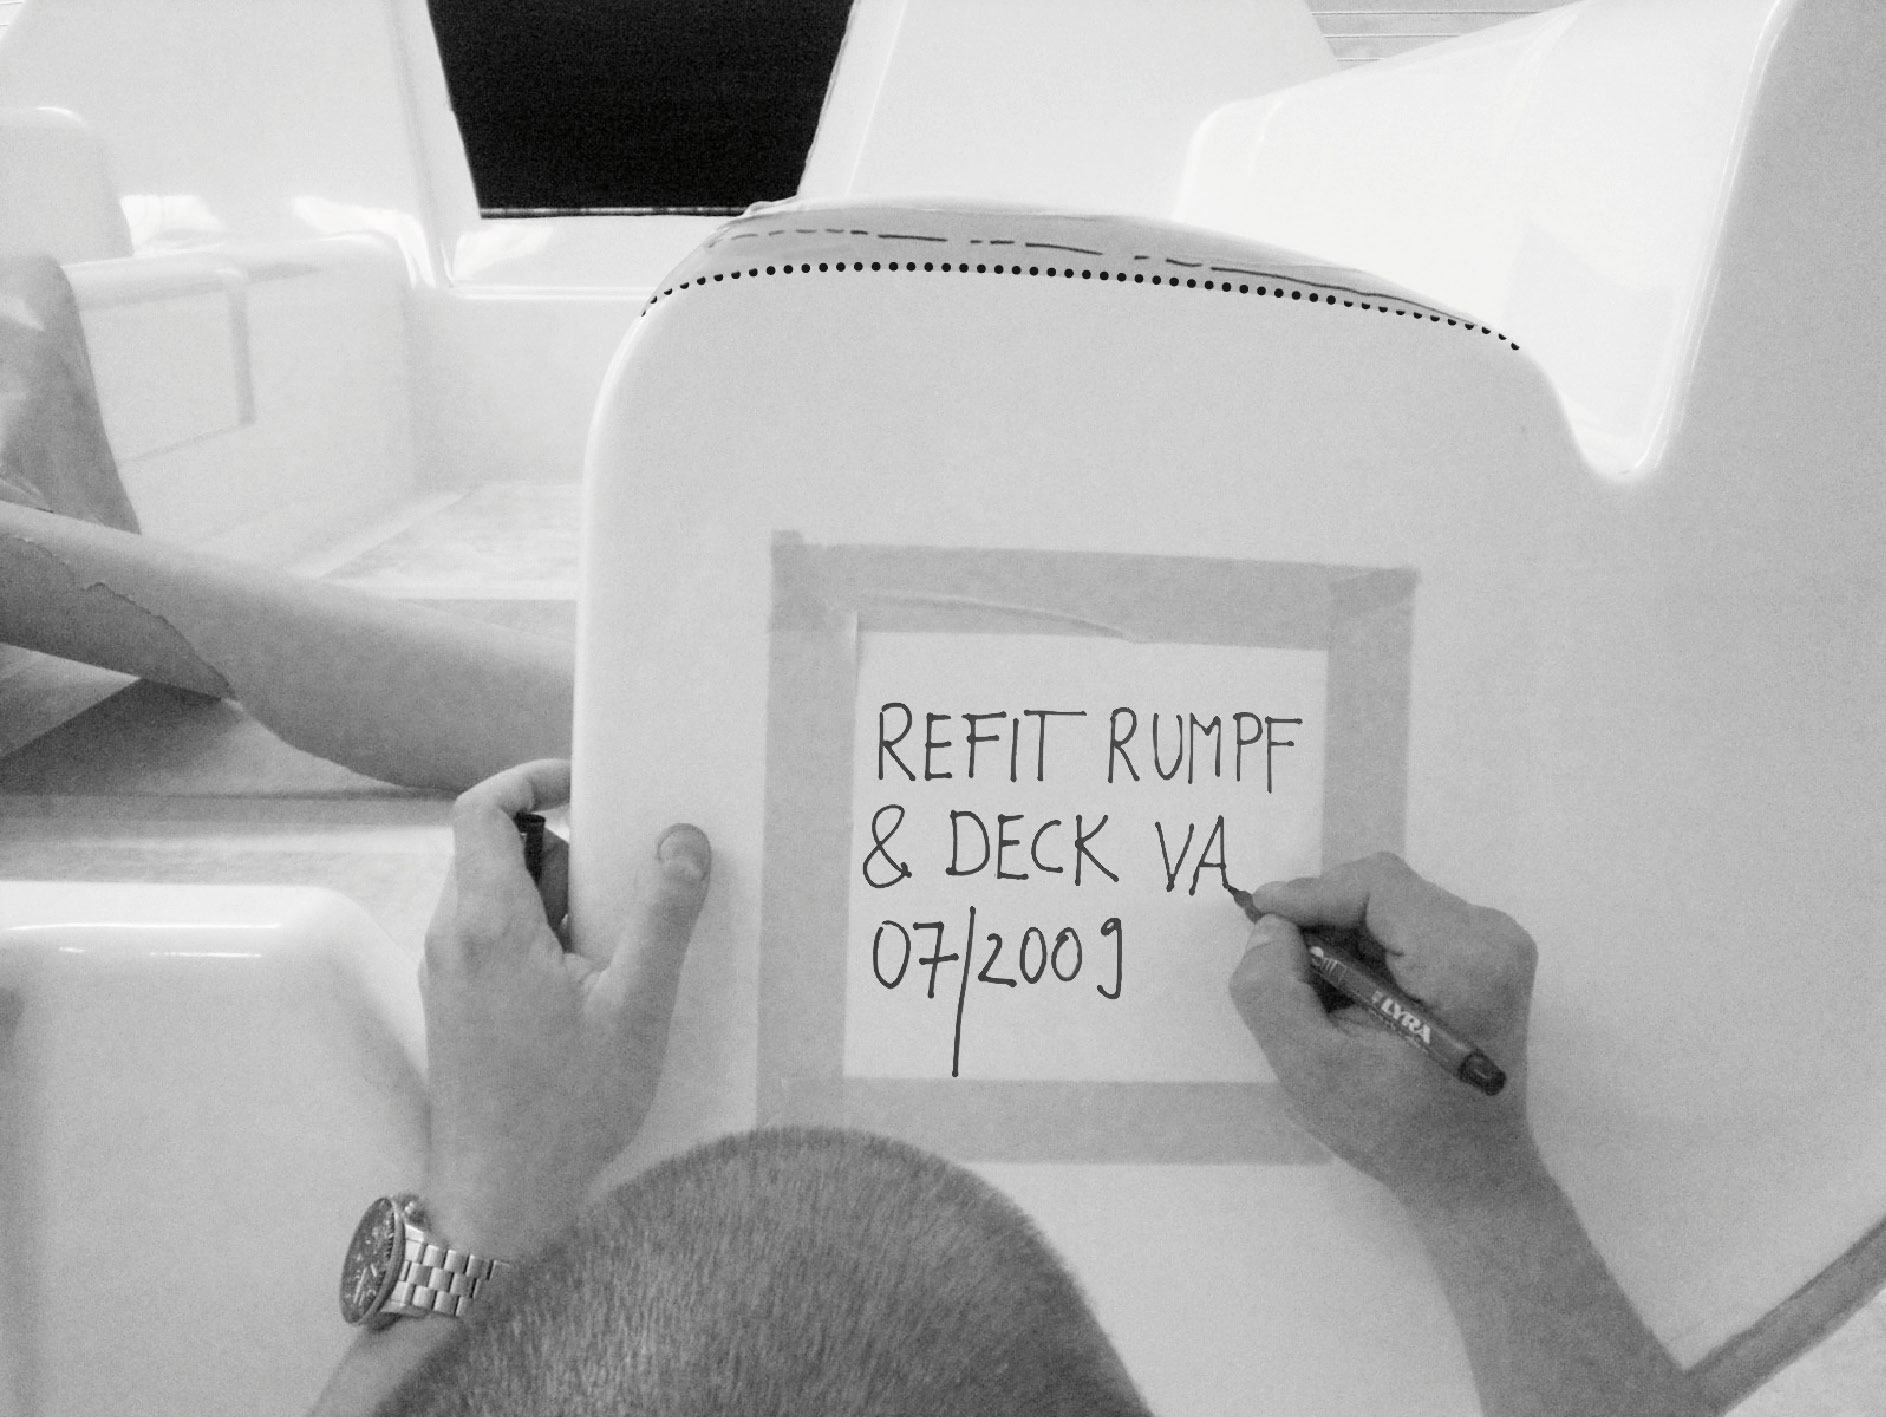 REFIT RUMPF
& DECK VA
07/2009
LYRA